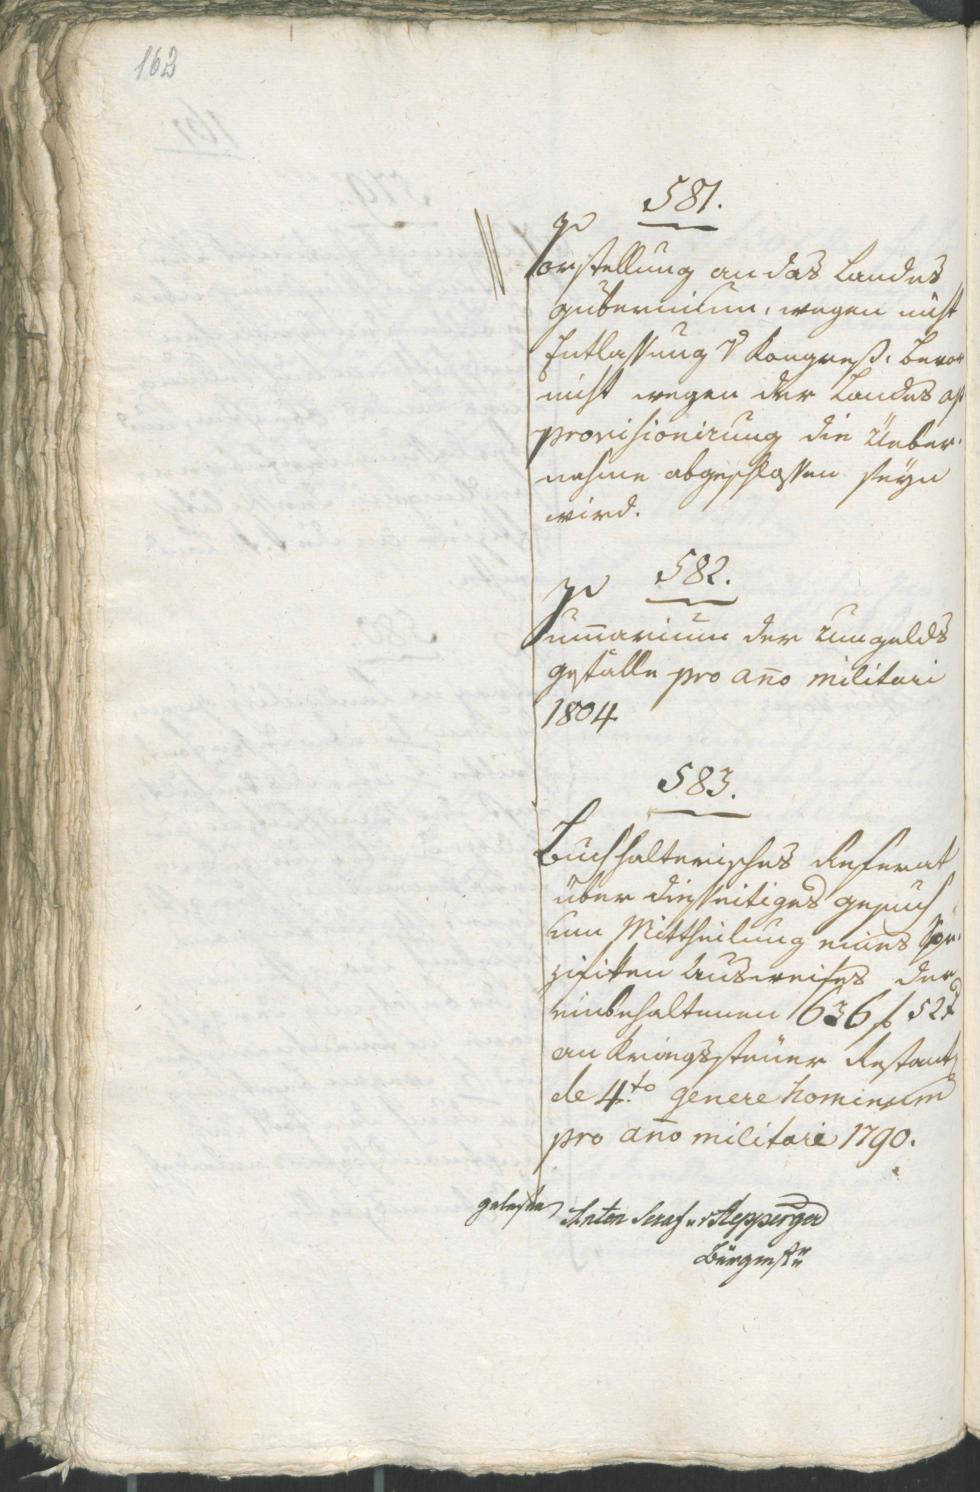 163
581.
Vorstellung an das Landes
gubernium, wegen nicht
Entlassung Kongreß. bevor
nicht wegen der Landes ap
provisionirung die Ueber-
nahme abgeschlossen seyn
wird.
582.
Sum̄arium der Umgelds
gefälle pro an̄o militari
1804
583.
Buchhalterisches Referat
über diesseitiges gesuch
um Mittheilung eines Spe-
zifiken Ausweises der
einbehaltenen 636 f 52 x
an Kriegssteuer Restant
de 4.to genere hominum
pro an̄o militari 1790.
gelesen Anton Seraf. v Stepperger
Bürgmstr